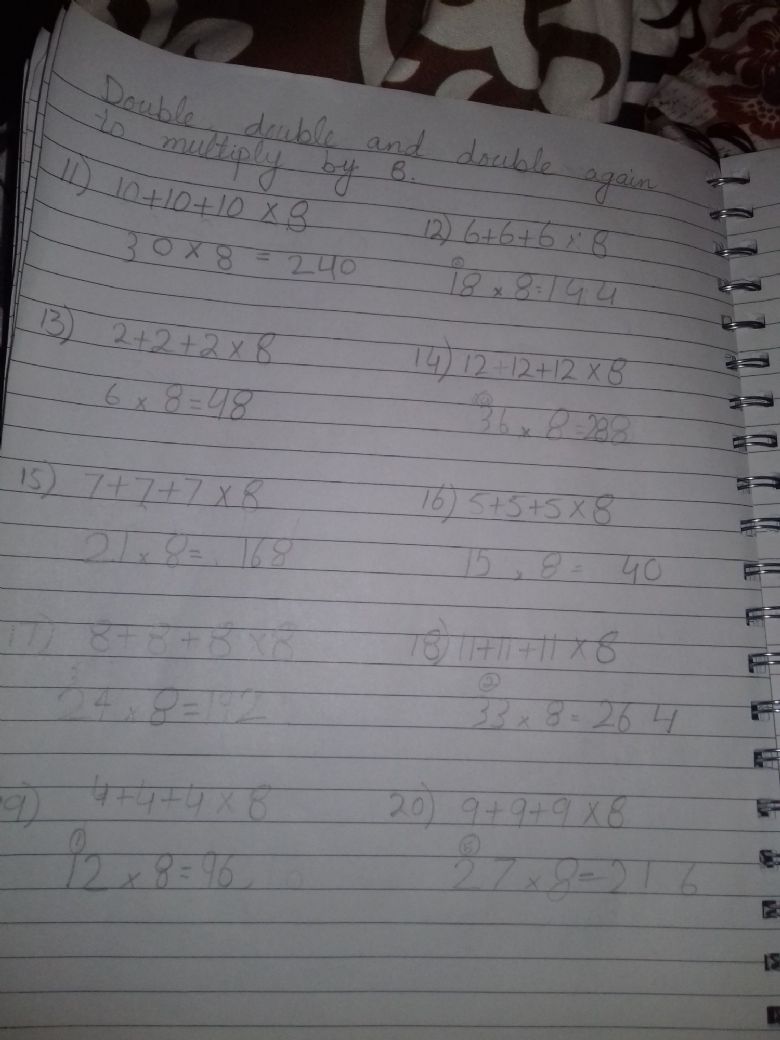 Double, double and double again
to multiply by 8.
11) 10+10+10 × 8
30 × 8 = 240
12) 6+6+6 × 8
18 × 8 = 144
13) 2+2+2 × 8
6 × 8 = 48
14) 12+12+12 × 8
36 × 8 = 288
15) 7+7+7 × 8
21 × 8 = 168
16) 5+5+5 × 8
15 × 8 = 40
17) 8+8+8 × 8
24 × 8 = 192
18) 11+11+11 × 8
33 × 8 = 264
9) 4+4+4 × 8
12 × 8 = 96
20) 9+9+9 × 8
27 × 8 = 216